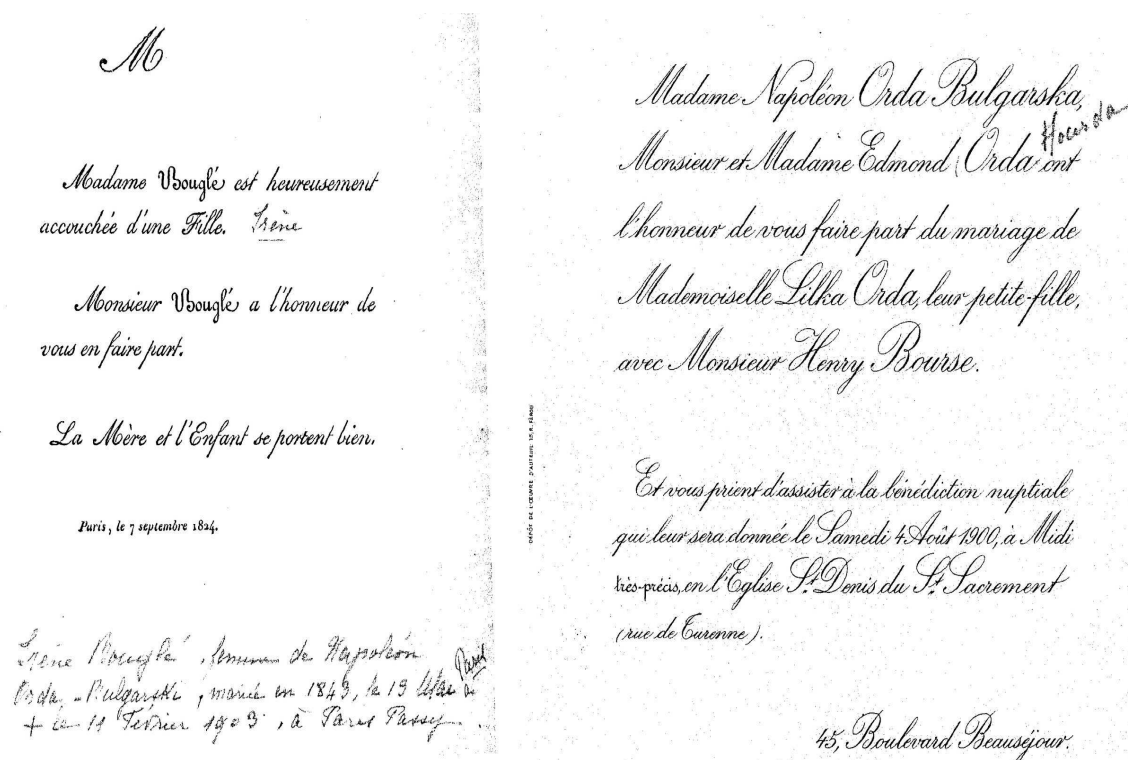 M
Madame Bouglé est heureusement
accouchée d'une Fille. Irène
Monsieur Bouglé a l'honneur de
vous en faire part.
La Mère et l'Enfant se portent bien.
Paris, le 7 septembre 1824.
Irène Bouglé, femme de Napoléon
Orda - Bulgarski, mariée en 1843, le 19 à Paris
+ le 11 Février 1903, à Paris Passy.
Madame Napoléon Orda Bulgarska,
Monsieur et Madame Edmond (Orda ont
l'honneur de vous faire part du mariage de
Mademoiselle Lilka Orda, leur petite-fille,
avec Monsieur Henry Bourse.
DÉPÔT DE L'ŒUVRE D'AUTEUIL
Et vous prient d'assister à la bénédiction nuptiale
qui leur sera donnée le Samedi 4 Août 1900, à Midi
très-précis, en l'Eglise St. Denis du St. Sacrement
(rue de Turenne).
45, Boulevard Beauséjour.